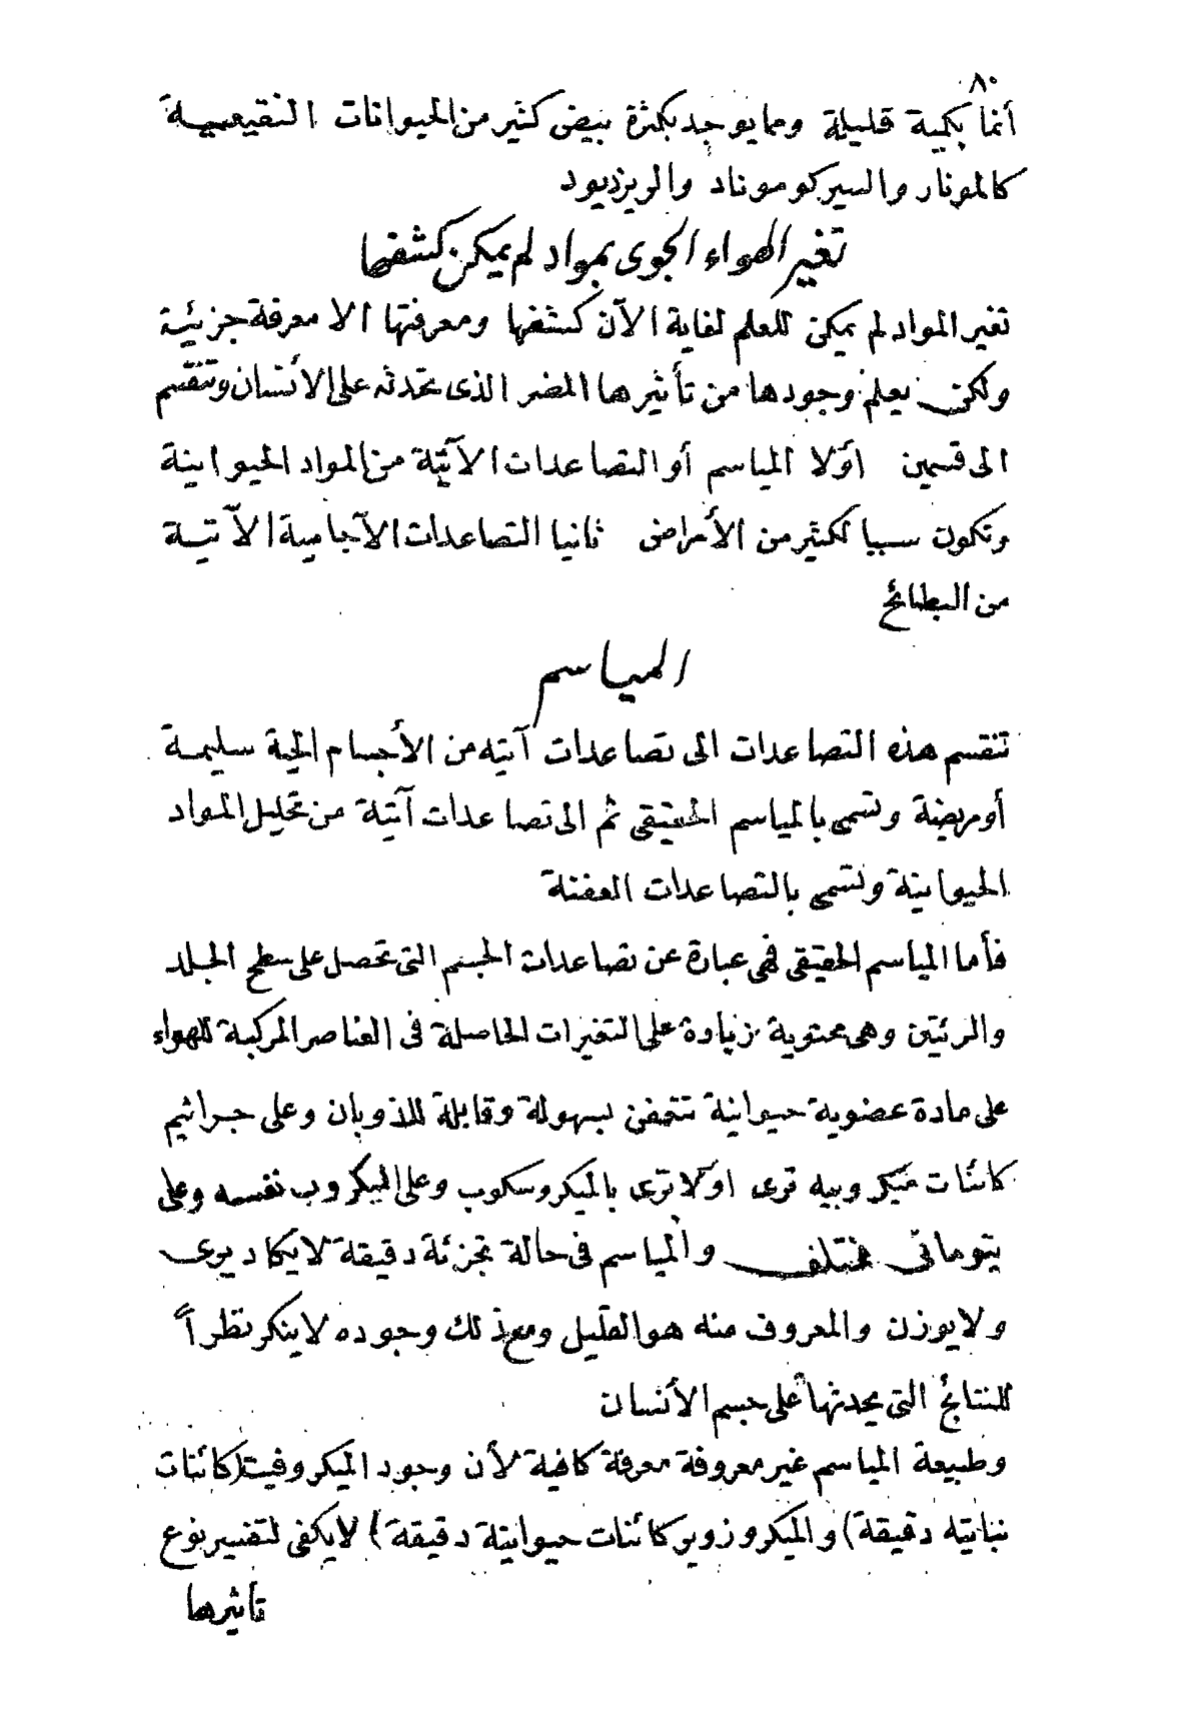 ٨٠
أنما بكمية قليلة ومما يوجد بكثرة بيض كثير من الحيوانات النقيعيـة
كالمونار والسيركوموناد والويزديود
تغير الهواء الجوى بمواد لم يمكن كشفها
تغير المواد لم يمكن للعلم لغاية الآن كشفها ومعرفتها الا معرفة جزئية
ولكن يعلم وجودها من تأثيرها المضر الذى تحدثه على الأنسان وتنقسم
الى قسمين أولا المياسم أو التصاعدات الآتية من المواد الحيوانية
وتكون سببا لكثير من الأمراض ثانيا التصاعدات الآجامية الآتيـة
من البطائح
المياسم
تنقسم هذه التصاعدات الى تصاعدات آتيه من الأجسام الحية سليمـة
أومريضة وتسمى بالمياسم الحقيقى ثم الى تصاعدات آتية من تحليل المواد
الحيوانية وتسمى بالتصاعدات العفنة
فأما المياسم الحقيقى فهى عبارة عن تصاعدات الجسم التى تحصل على سطح الجلد
والرئتين وهى محتوية بزيادة على التغيرات الحاصلة فى العناصر المركبة للهواء
على مادة عضوية حيوانية تتعفن بسهولة وقابلة للذوبان وعلى جراثيم
كائنات ميكروبيه ترى اولا ترى بالميكروسكوب وعلى الميكروب نفسه وعلى
يتومانى مختلف والمياسم فى حالة تجزئة دقيقة لا يكاد يرى
ولا يوزن والمعروف منه هو القليل ومع ذلك وجوده لا ينكر نظراً
للنتائج التى يحدثها على جسم الأنسان
وطبيعة المياسم غير معروفة معرفة كافية لأن وجود الميكروفيت (كائنات
نباتيه دقيقة) والميكروزوير كائنات حيوانية دقيقة) لا يكفى لتفسير نوع
تأثيرها